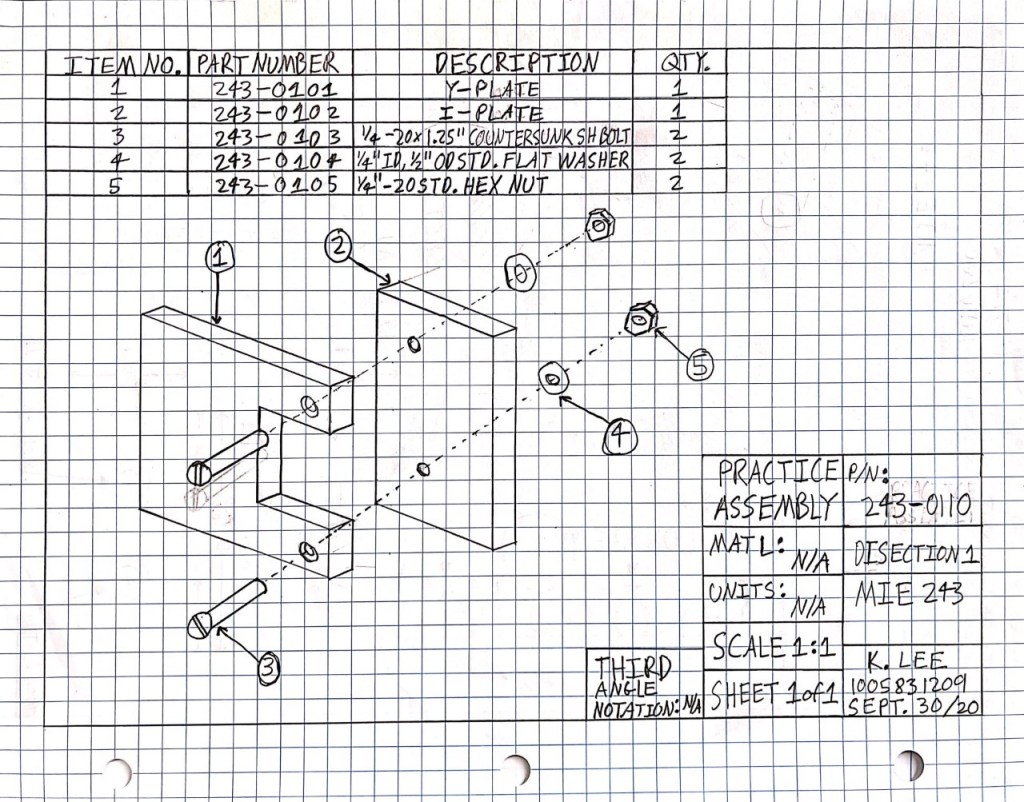 ITEM NO. PART NUMBER DESCRIPTION QTY.
1 243-0101 Y-PLATE 1
2 243-0102 I-PLATE 1
3 243-0103 1/4-20x1.25" COUNTERSUNK SH BOLT 2
4 243-0104 1/4" ID, 1/2" OD STD. FLAT WASHER 2
5 243-0105 1/4"-20 STD. HEX NUT 2
1
2
5
4
3
PRACTICE ASSEMBLY
P/N:
243-0110
MATL:
N/A
DISECTION 1
UNITS:
N/A
MIE 243
SCALE 1:1
THIRD
ANGLE
NOTATION: N/A
SHEET 1 of 1
K. LEE
1005831209
SEPT. 30/20